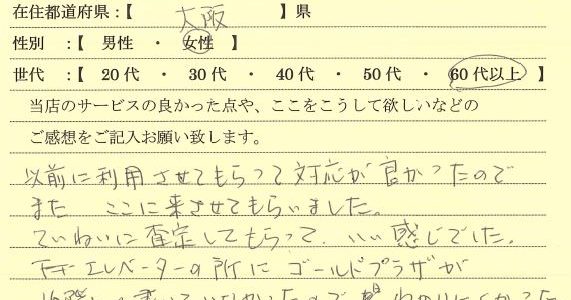 在住都道府県：【　大阪　】県
性別　：【　男性　・　女性　】
世代　：【　20代　・　30代　・　40代　・　50代　・　60代以上　】
当店のサービスの良かった点や、ここをこうして欲しいなどの
ご感想をご記入お願い致します。
以前に利用させてもらって対応が良かったので
また　ここに来させてもらいました。
ていねいに査定してもらって、いい感じでした。
エレベーターの所に　ゴールドプラザが